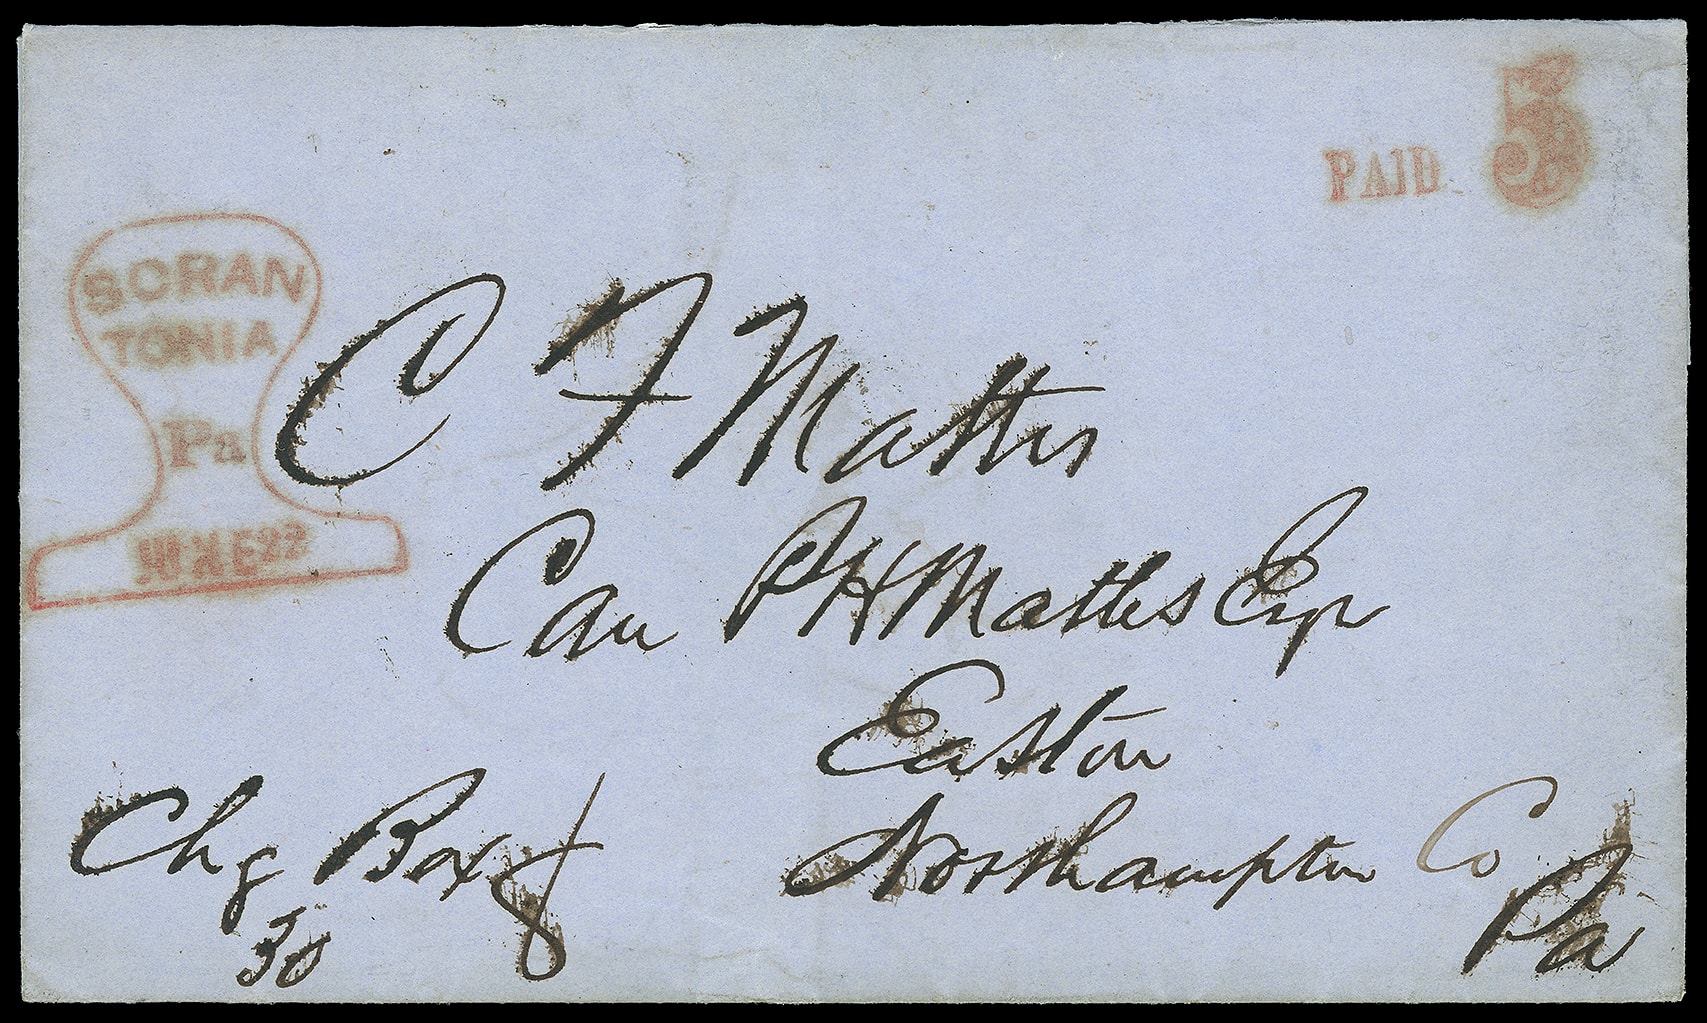 PAID 5
SCRAN
TONIA
Pa
JUNE 22
C F Mattes
Care P H Mattes Esqr
Easton
Northampton Co
Pa
Chg Box 8
30